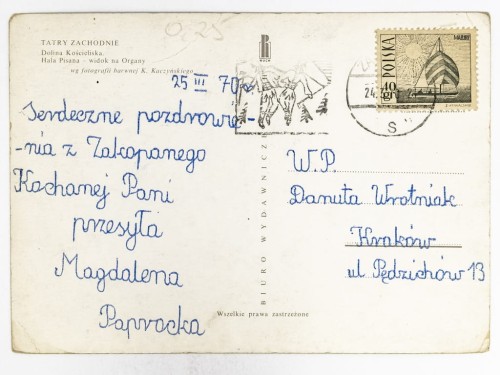 0,25
TATRY ZACHODNIE
Dolina Kościeliska.
Hala Pisana - widok na Organy
wg fotografii barwnej K. Kaczyńskiego
25 III 70r
Serdeczne pozdrowie-
-nia z Zakopanego
Kochanej Pani
przesyła
Magdalena
Paprocka
BIURO WYDAWNICZE
Wszelkie prawa zastrzeżone
POLSKA
40
GR
24.
S
W.P.
Danuta Wrotniak
Kraków
ul Pędzichów 13